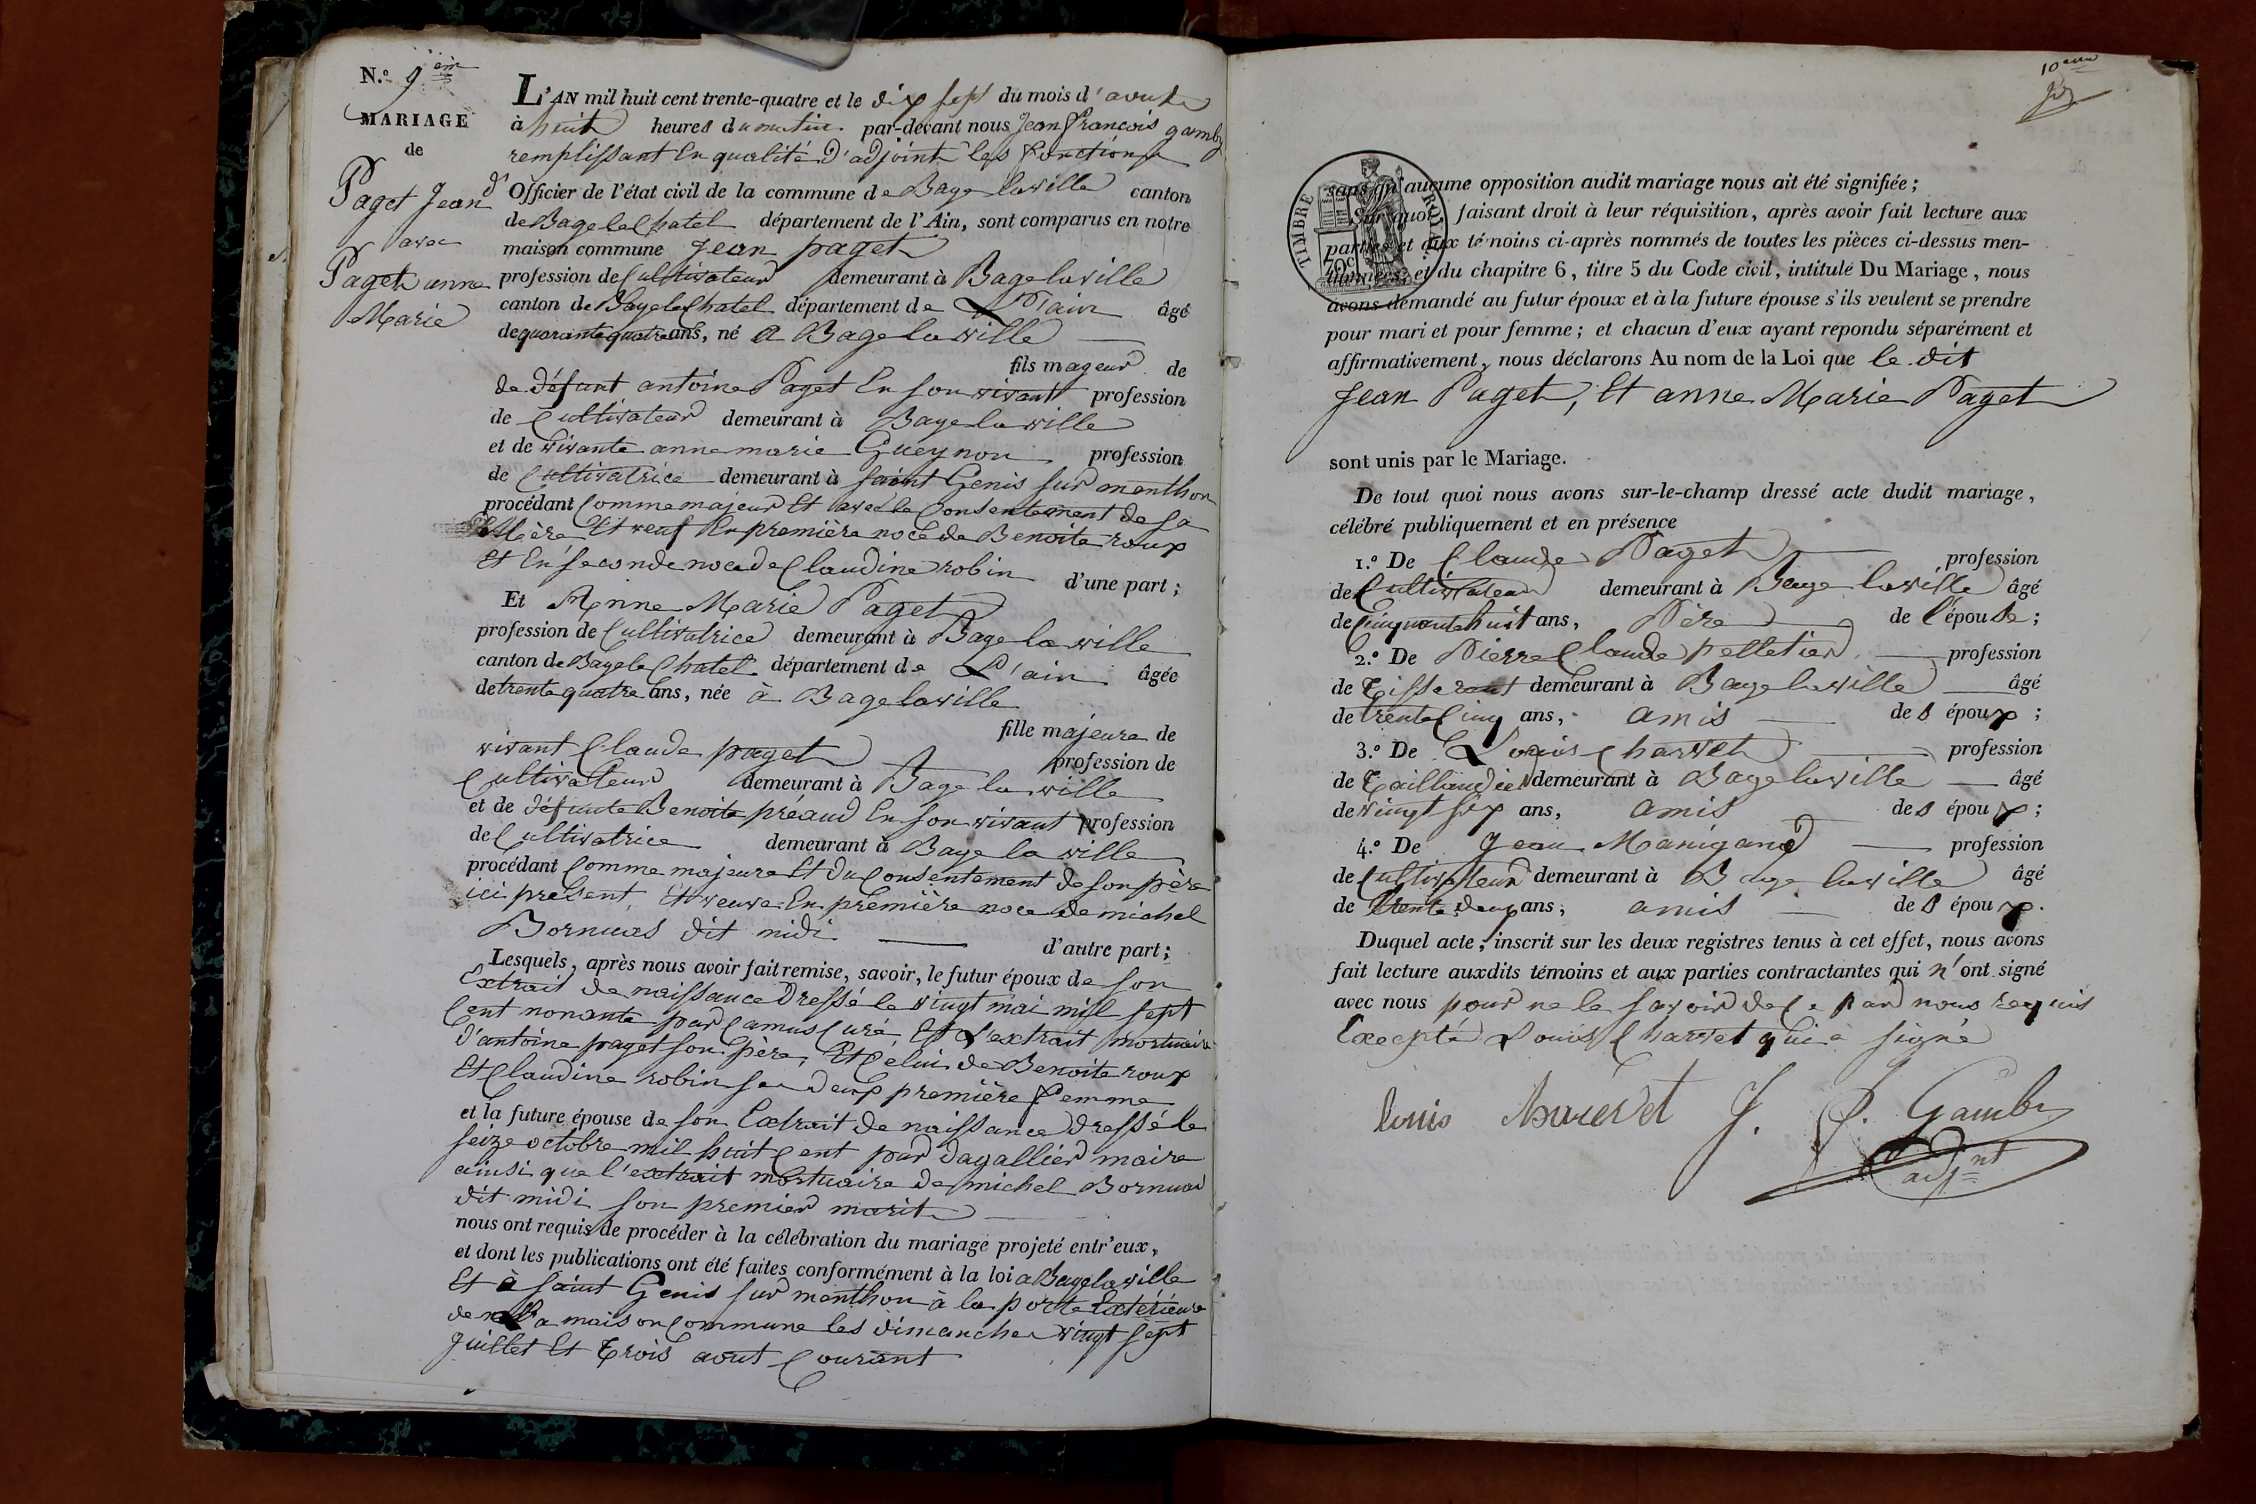 N.o 9 em
MARIAGE
de
Paget Jean
avec
Paget anne
Marie
L'AN mil huit cent trente-quatre et le dix sept du mois d'avout
à huit heures du matin par-devant nous Jean françois gamby
remplissant En qualité D'adjoint les fonctions
d' Officier de l'état civil de la commune de Bage laville canton
de Bage le Chatel département de l'Ain, sont comparus en notre
maison commune Jean paget
profession de Cultivateur demeurant à Bage laville
canton de Bage le Chatel département de L'ain âgé
de quarante quatre ans, né a Bage la ville
fils mageur de
de défunt antoine Paget En son vivant profession
de Cultivateur demeurant à Bage la ville
et de vivante anne marie Gueynon profession
de Cultivatrice demeurant à saint Genis sur menthon
procédant Comme majeur Et avec le Consentement de sa
Mère Et veuf En première noce de Benoite roux
Et En seconde noce de Claudine robin d'une part ;
Et Anne Marie Paget
profession de Cultivatrice demeurant à Bage la ville
canton de Bage le Chatel département de L'ain âgée
de trente quatre ans, née à Bage laville
fille majeure de
vivant Claude paget profession de
Cultivateur demeurant à Bage la ville
et de défunte Benoite préaud En son vivant profession
de Cultivatrice demeurant à Bage la ville
procédant Comme majeure Et du Consentement de son père
ici présent, Et veuve En première noce de michel
Bornuas dit midi d'autre part ;
Lesquels, après nous avoir fait remise, savoir, le futur époux de son
Extrait de naissance Dressé le vingt mai mil sept
Cent nonante par Camus Curé, Et L'extrait mortuaire
d'antoine paget son père, Et Celui de Benoite roux
Et Claudine robin se deux première femme
et la future épouse de son Extrait de naissance dressé le
seize octobre mil huit Cent par dagallier maire
ainsi que l'extrait mortuaire de michel Bornuas
dit midi son premier marit
nous ont requis de procéder à la célébration du mariage projeté entr'eux,
et dont les publications ont été faites conformément à la loi a Bage laville
Et à saint Genis sur menthon à la porte Extérieure
de la maison Commune les dimanche vingt sept
Juillet Et Trois aout Courant
10 eme
TIMBRE ROYAL
sans qu'aucune opposition audit mariage nous ait été signifiée ;
Sur quoi, faisant droit à leur réquisition, après avoir fait lecture aux
parties et aux témoins ci-après nommés de toutes les pièces ci-dessus men-
tionnées, et du chapitre 6, titre 5 du Code civil, intitulé Du Mariage, nous
avons demandé au futur époux et à la future épouse s'ils veulent se prendre
pour mari et pour femme ; et chacun d'eux ayant repondu séparément et
affirmativement, nous déclarons Au nom de la Loi que le dit
Jean Paget, Et anne Marie Paget
sont unis par le Mariage.
De tout quoi nous avons sur-le-champ dressé acte dudit mariage,
célébré publiquement et en présence
1.o De Claude Paget profession
de Cultivateur demeurant à Bage laville âgé
de Cinquante huit ans, Père de l'épouse ;
2.o De Pierre Claude pelletier profession
de Tisserant demeurant à Bage laville âgé
de trente Cinq ans, amis des époux ;
3.o De Louis Charvet profession
de Taillandier demeurant à Bage laville âgé
de vingt six ans, amis des époux ;
4.o De Jean Manigand profession
de Cultivateur demeurant à Bage laville âgé
de trente deux ans, amis des époux.
Duquel acte, inscrit sur les deux registres tenus à cet effet, nous avons
fait lecture auxdits témoins et aux parties contractantes qui n'ont signé
avec nous pour ne le savoir de Ce par nous requis
Excepté Louis Charvet qui a signé
louis Charvet J. f. Gamby
adjnt